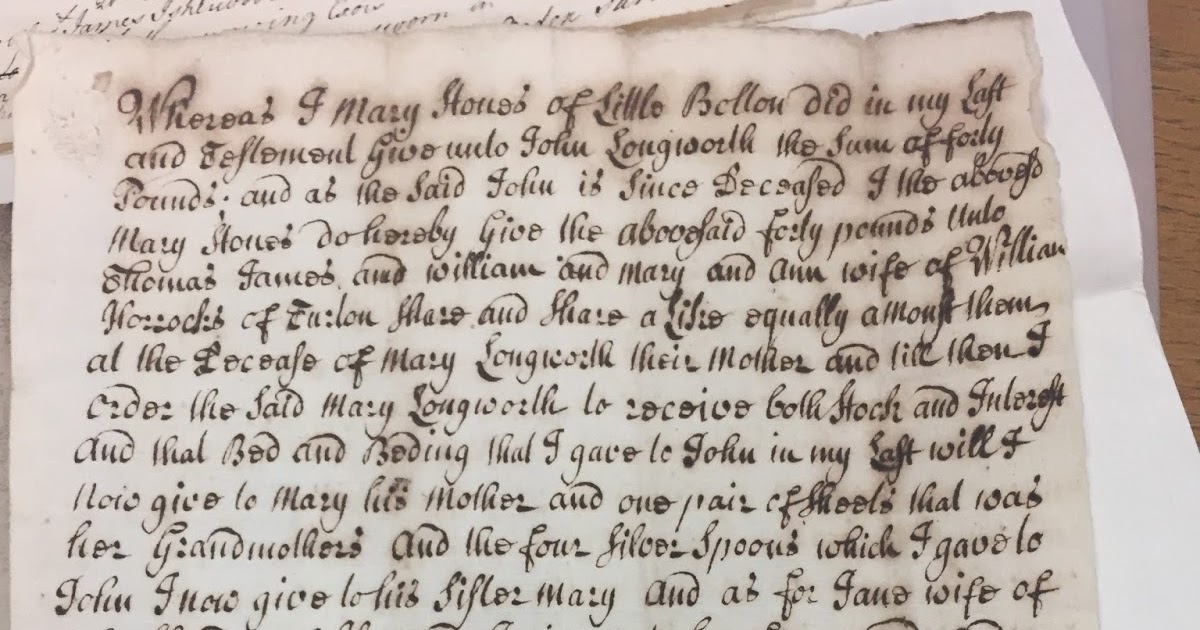 James
Whereas I Mary Stones of Little Bolton did in my Last
and Testement Give unto John Longworth the Sum of forty
Pounds. and as the Said John is Since Deceased I the abovesd
Mary Stones do hereby Give the abovesaid forty pounds Unto
Thomas James and William and Mary and Ann wife of William
Horrocks of Turton Share and Share a Like equally amonst them
at the Decease of Mary Longworth their Mother and till then I
Order the Said Mary Longworth to receive both Stock and Interest
And that Bed and Beding that I gave to John in my Last will I
Now give to Mary his Mother and one pair of Sheets that was
her Grandmothers And the four Silver Spoons which I gave to
John I now give to his Sister Mary And as for Jane wife of